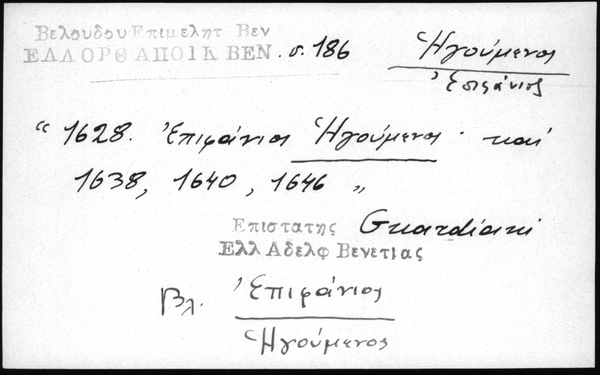 Βελουδου Επιμελητ Βεν
ΕΛΛΟΡΘ ΑΠΟΙΚ ΒΕΝ. σ. 186
Ἡγούμενος
Ἐπιφάνιος
“ 1628. Ἐπιφάνιος Ἡγούμενος · καί
1638, 1640, 1646 „
Επιστατης Guardiani
Ελλ Αδελφ Βενετιας
Βλ. Ἐπιφάνιος
Ἡγούμενος